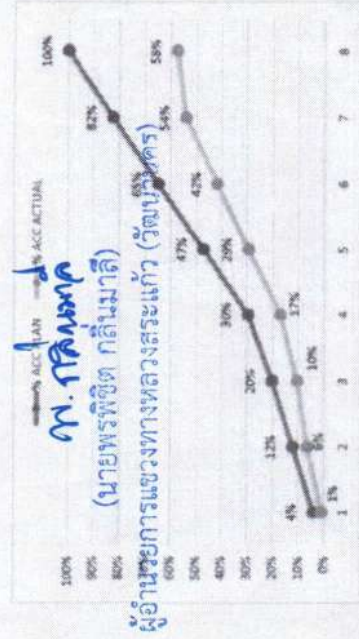 % ACC PLAN % ACC ACTUAL
พ. กลิ่นมาลี
(นายพรพิชิต กลิ่นมาลี)
ผู้อำนวยการแขวงทางหลวงสระแก้ว (วัฒนานคร)
100%
90%
80%
70%
60%
50%
40%
30%
20%
10%
0%
4%
12%
20%
30%
47%
65%
82%
100%
1%
6%
10%
17%
29%
42%
54%
58%
1 2 3 4 5 6 7 8